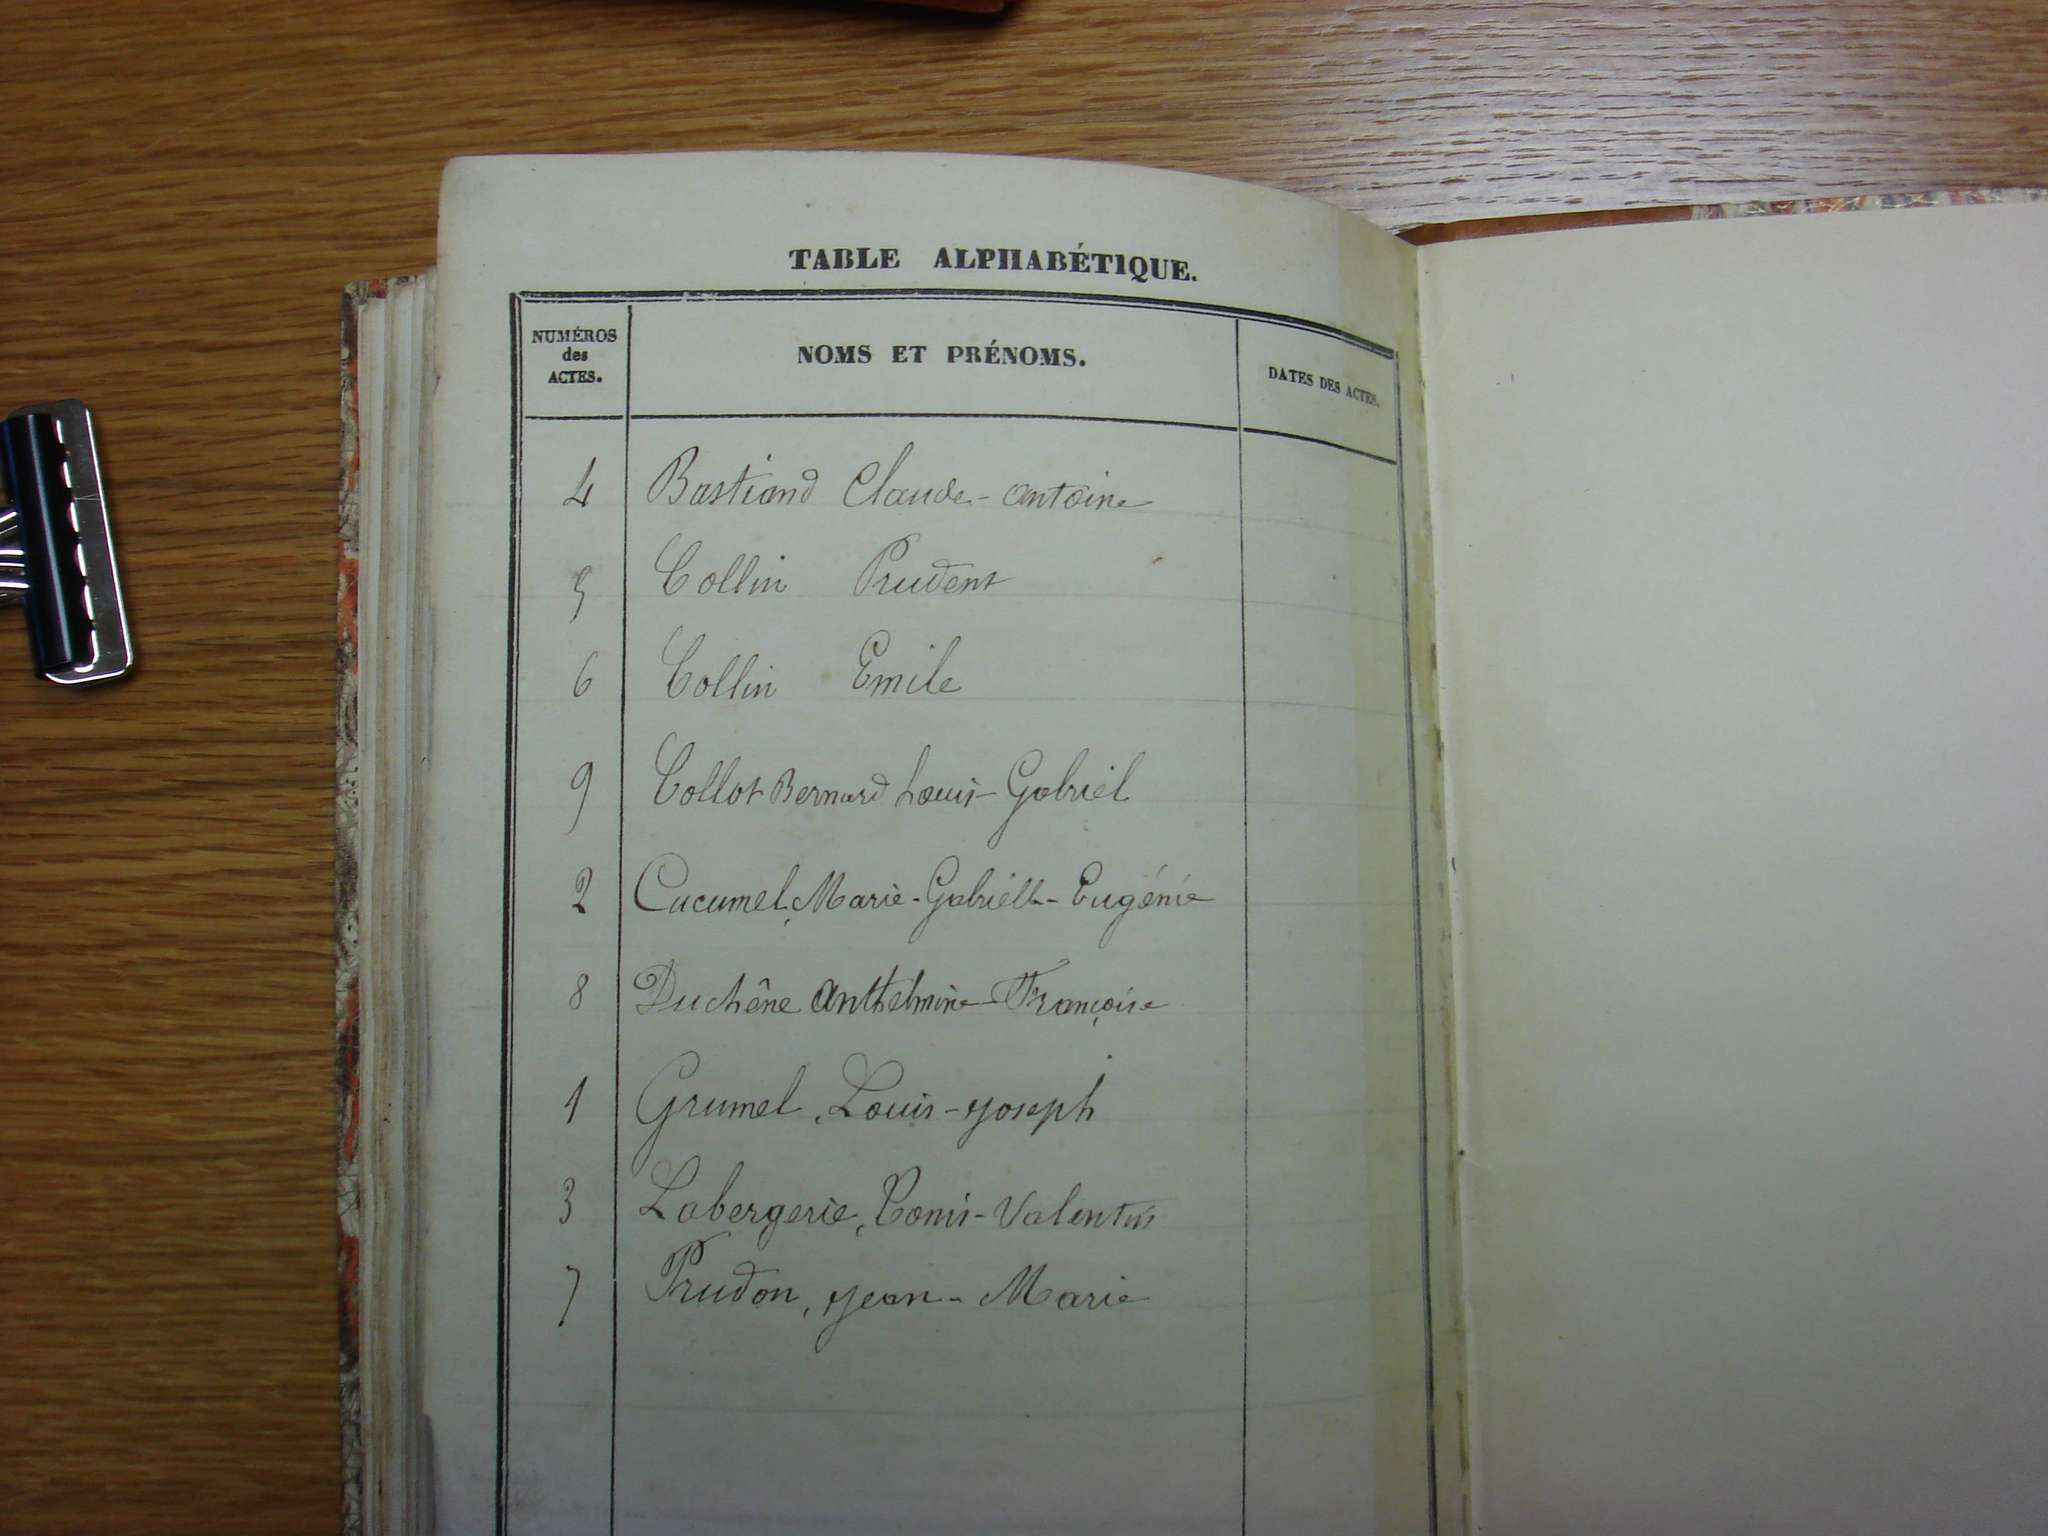 TABLE ALPHABÉTIQUE.
NUMÉROS des ACTES. NOMS ET PRÉNOMS. DATES DES ACTES.
4 Bastiand Claude-antoine
5 Collin Prudent
6 Collin Emile
9 Collot Bernard Louis-Gabriel
2 Cucumel, Marie-Gabrielle-Eugénie
8 Duchêne Anthelmine-Françoise
1 Grumel, Louis-joseph
3 Labergerie, Valentin
7 Prudon, jean-Marie